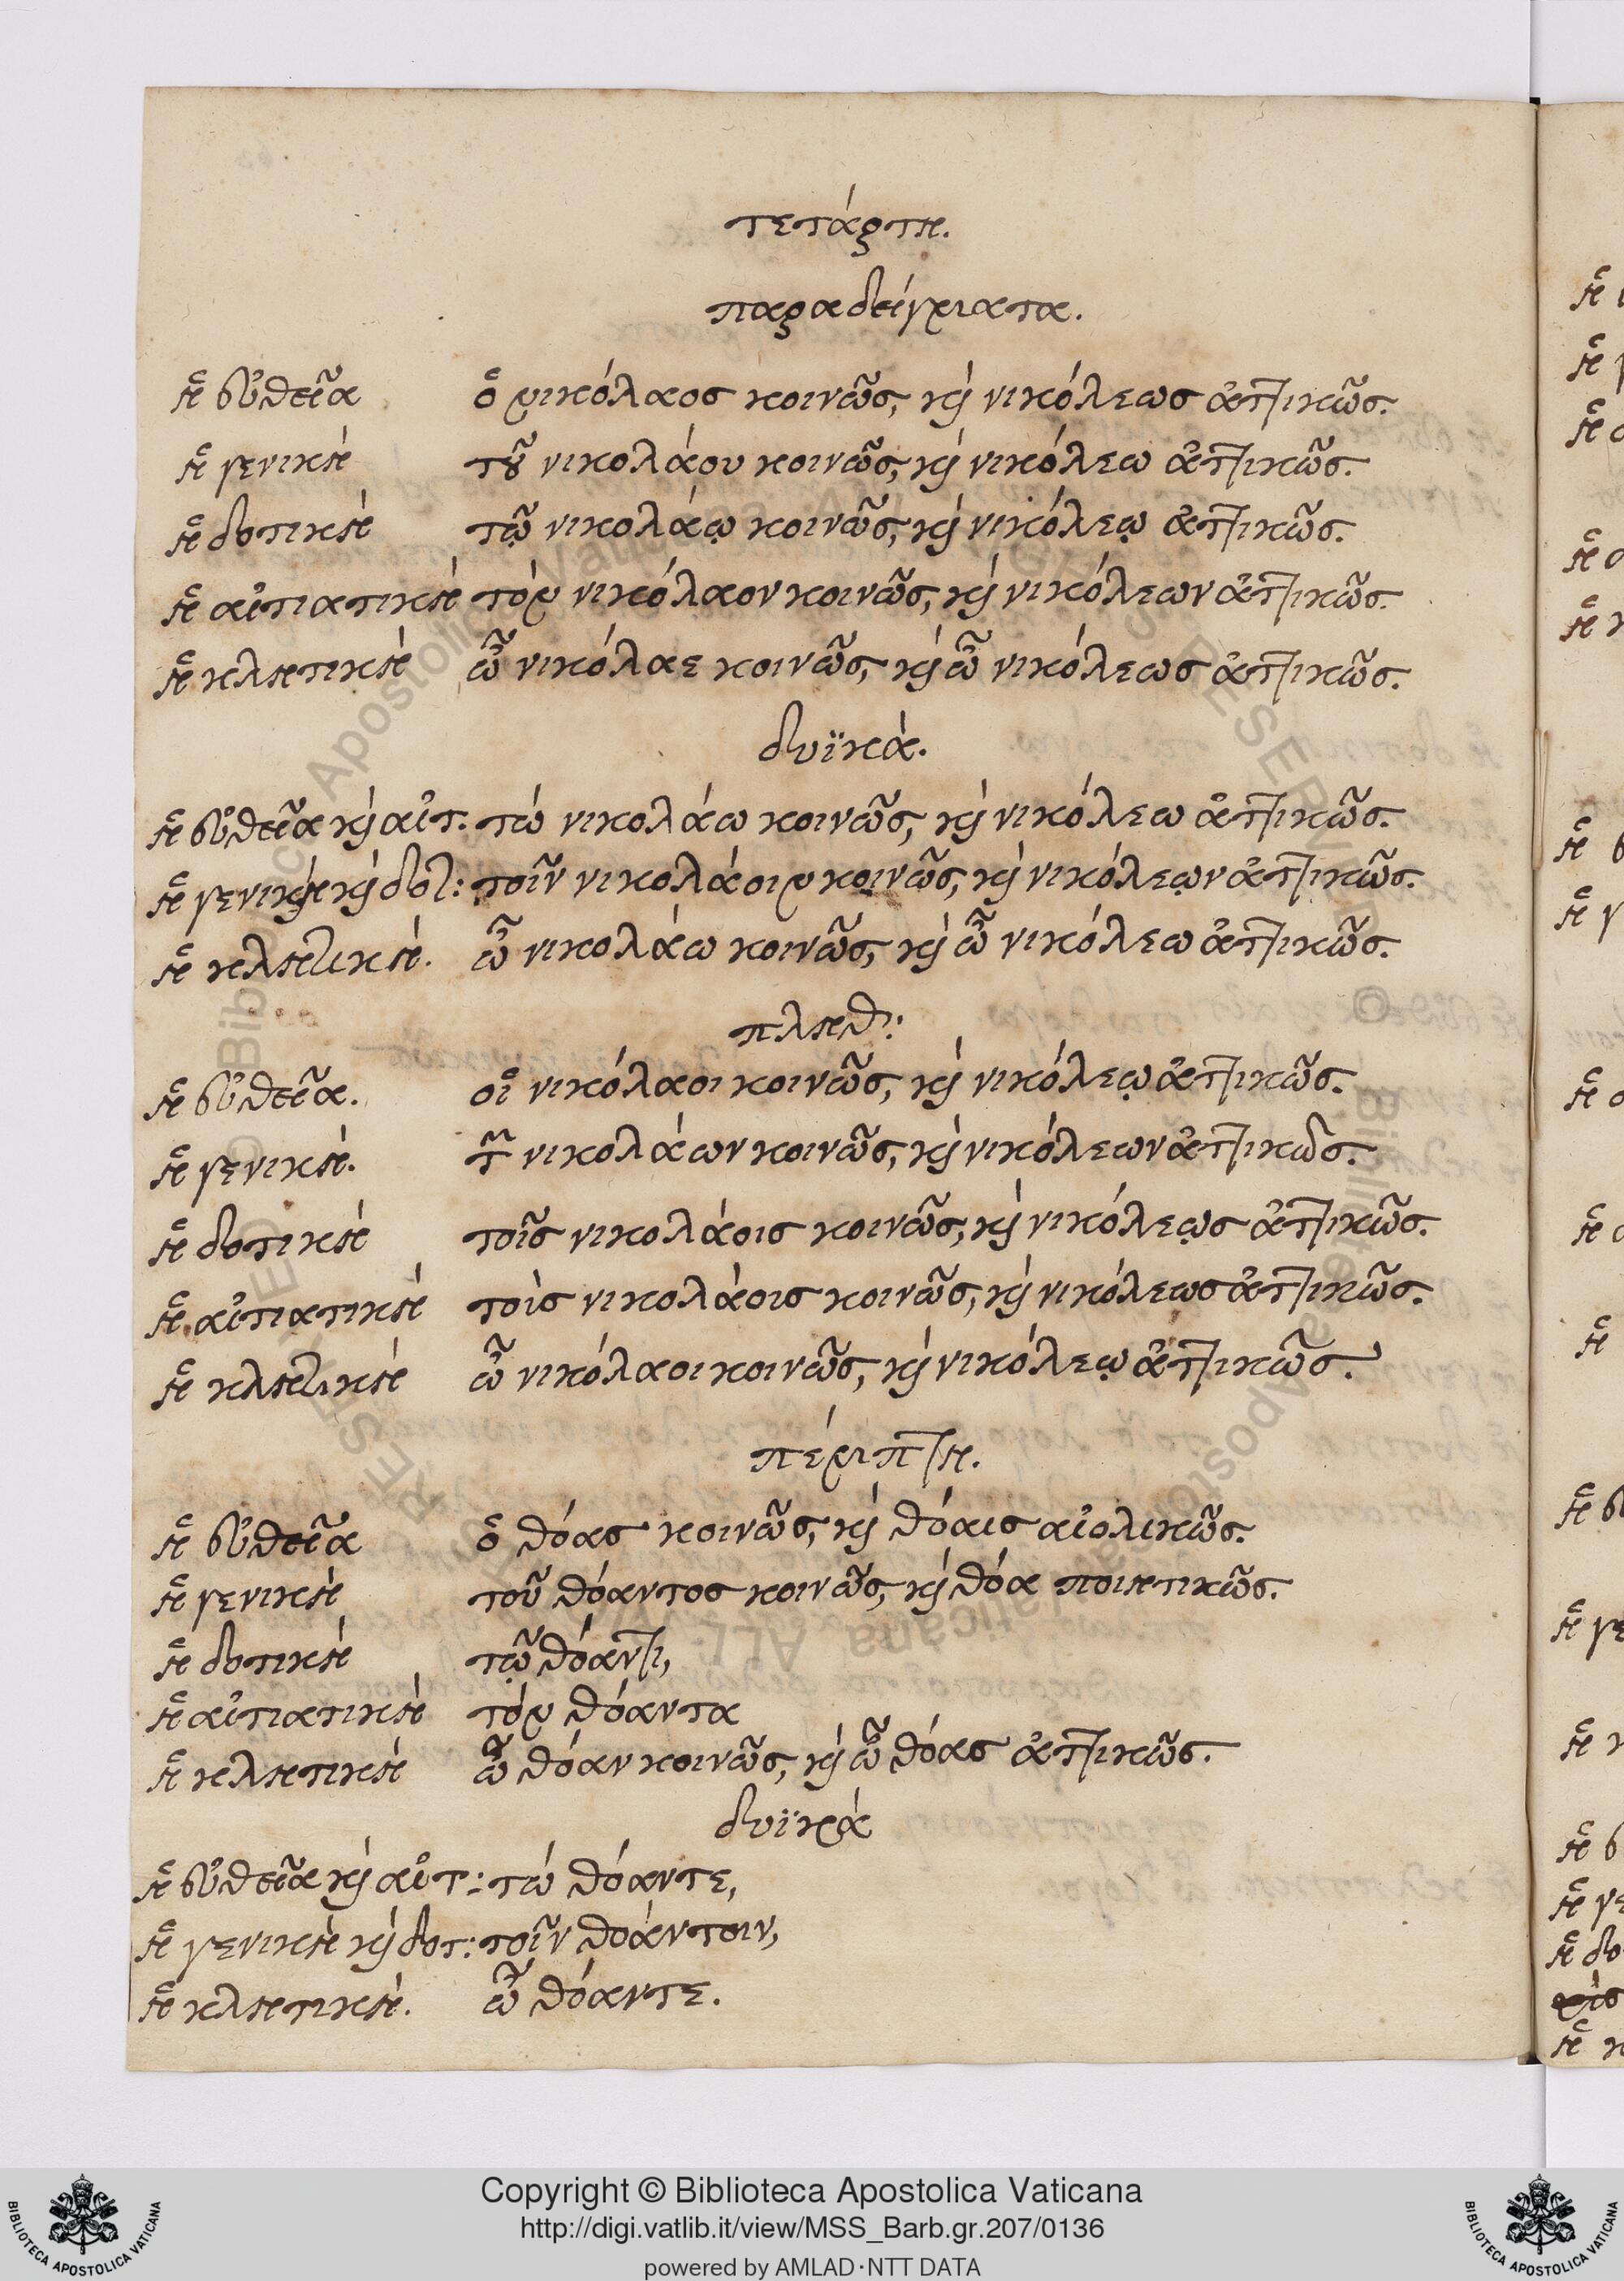 τετάρτη.
παραδείγματα.
ἡ εὐθεῖα ὁ νικόλαος κοινῶς, καὶ νικόλεως ἀττικῶς.
ἡ γενικὴ τοῦ νικολάου κοινῶς, καὶ νικόλεω ἀττικῶς.
ἡ δοτικὴ τῷ νικολάῳ κοινῶς, καὶ νικόλεῳ ἀττικῶς.
ἡ αἰτιατικὴ τὸν νικόλαον κοινῶς, καὶ νικόλεων ἀττικῶς.
ἡ κλητικὴ ὦ νικόλαε κοινῶς, καὶ ὦ νικόλεως ἀττικῶς.
δυϊκά.
ἡ εὐθεῖα καὶ αἰτ. τὼ νικολάω κοινῶς, καὶ νικόλεω ἀττικῶς.
ἡ γενικὴ καὶ δοτ: τοῖν νικολάοιν κοινῶς, καὶ νικόλεῳν ἀττικῶς.
ἡ κλητικὴ. ὦ νικολάω κοινῶς, καὶ ὦ νικόλεω ἀττικῶς.
πληθ:
ἡ εὐθεῖα. οἱ νικόλαοι κοινῶς, καὶ νικόλεῳ ἀττικῶς.
ἡ γενικὴ. τῶν νικολάων κοινῶς, καὶ νικόλεων ἀττικῶς.
ἡ δοτικὴ τοῖς νικολάοις κοινῶς, καὶ νικόλεῳς ἀττικῶς.
ἡ αἰτιατικὴ τοὶς νικολάοις κοινῶς, καὶ νικόλεως ἀττικῶς.
ἡ κλητικὴ ὦ νικόλαοι κοινῶς, καὶ νικόλεῳ ἀττικῶς.
πέμπτη.
ἡ εὐθεῖα ὁ θόας κοινῶς, καὶ θόαις αἰολικῶς.
ἡ γενικὴ τοῦ θόαντος κοινῶς, καὶ θόα ποιητικῶς.
ἡ δοτικὴ τῷ θόαντι,
ἡ αἰτιατικὴ τὸν θόαντα
ἡ κλητικὴ ὦ θόαν κοινῶς, καὶ ὦ θόας ἀττικῶς.
δυϊκὰ
ἡ εὐθεῖα καὶ αἰτ: τὼ θόαντε,
ἡ γενικὴ καὶ δοτ: τοῖν θοάντοιν,
ἡ κλητικὴ. ὦ θόαντε.
Copyright © Biblioteca Apostolica Vaticana
http://digi.vatlib.it/view/MSS_Barb.gr.207/0136
powered by AMLAD·NTT DATA
BIBLIOTECA APOSTOLICA VATICANA
BIBLIOTECA APOSTOLICA VATICANA